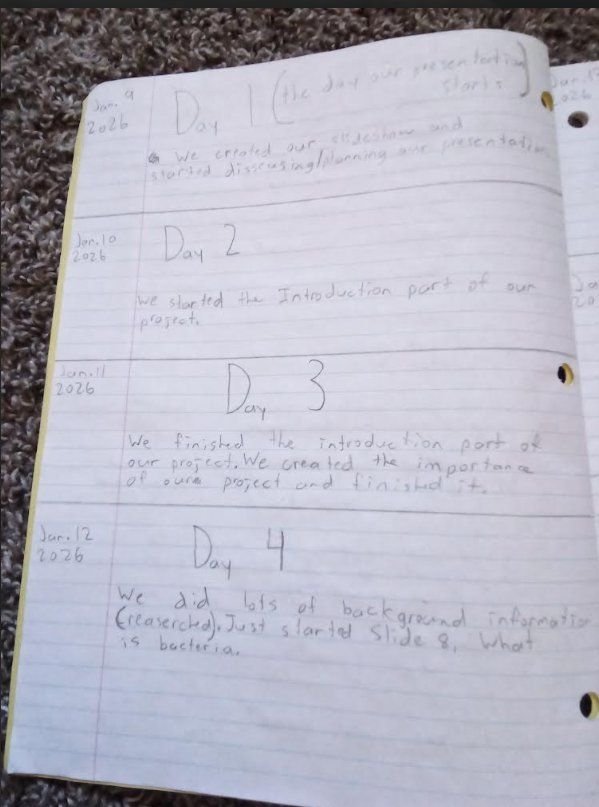 Jan. 9
2026
Day 1 (the day our presentation
starts)
We created our slideshow and
started disscusing/planning our presentation
Jan. 10
2026
Day 2
We started the Introduction part of our
project.
Jan. 11
2026
Day 3
We finished the introduction part of
our project. We created the importance
of our project and finished it.
Jan. 12
2026
Day 4
We did lots of background information
(reasercted). Just started Slide 8, What
is bacteria.